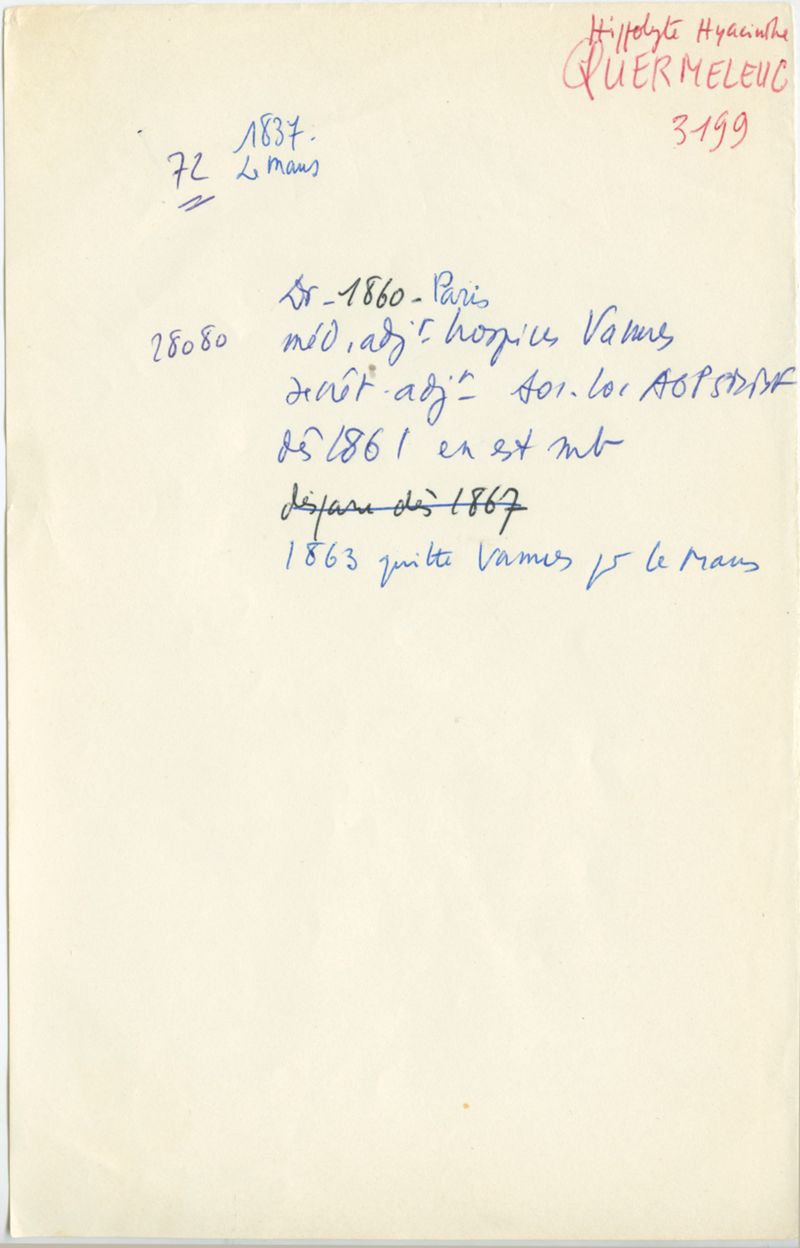 Hippolyte Hyacinthe
QUERMELEUC
3199
1837.
72 Le Mans
Dr - 1860 - Paris
28080 méd. adjt hospices Vannes
secrét. adjt Soc. loc
dès 1861 en est mb
dispare dès 1867
1863 quitte Vannes pr le Mans